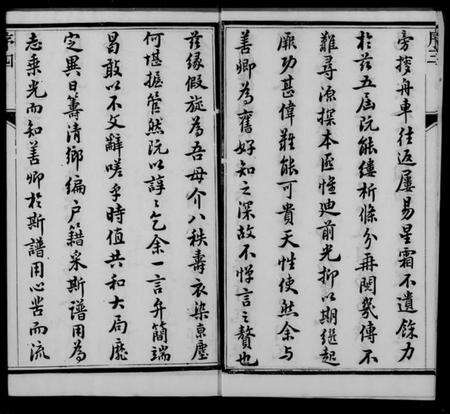 序三
旁搜舟車往返屢易星霜不遺餘力
於茲五屆既能縷析條分再閱幾傳不
難尋源探本匪惟迪前光抑以期繼起
厥功甚偉難能可貴天性使然余与
善卿為舊好知之深故不憚言之贅也
茲緣假旋為吾母介八秩壽衣染京塵
何堪握管然既以諄諄乞余一言弁簡端
曷敢以不文辭嗟乎時值共和大局麤
定異日籌清鄉編户籍采斯譜用為
志乘光而知善卿於斯譜用心苦而流
序四